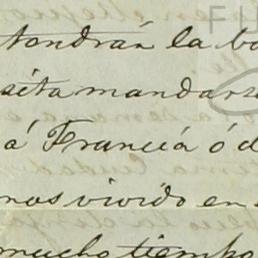 tendrán la bo
sita mandars
á Francia ó d
mos vivido en
mucho tiempo